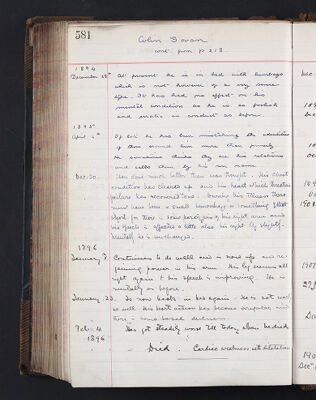 581
Colin Govan
cont. from p 213.
1894
December 28th At present he is in bed with lumbago
which is not however of a very severe
type. It has had no effect on his
mental condition as he is as foolish
and erratic in conduct as before
1895
April 4th Of late he has been mistaking the identities
of those around him more than formerly.
He sometimes thinks they are his relations
and calls them by his own names
Dec. 30. Has done much better than was thought. His chest
condition has cleared up and his heart which threatened
failure has recovered tone. During his illness there
must have been a small hemorrhage or something of that
sort for there is some paralysis of his right arm and
his speech is affected a little also his right leg slightly.
Mentally he is unchanged.
1896
January 7. Continues to do well and is now up and re-
gaining power in his arm. His leg seems all
right again & his speech is improving. He is
mentally as before.
January 23. Is now back in bed again. He is not very
well. His heart action has become irregular and
there is some basal dulness.
Feb. 4. Has got steadily worse till today when he died
1896
" Died. Cardiac weakness with dilatation